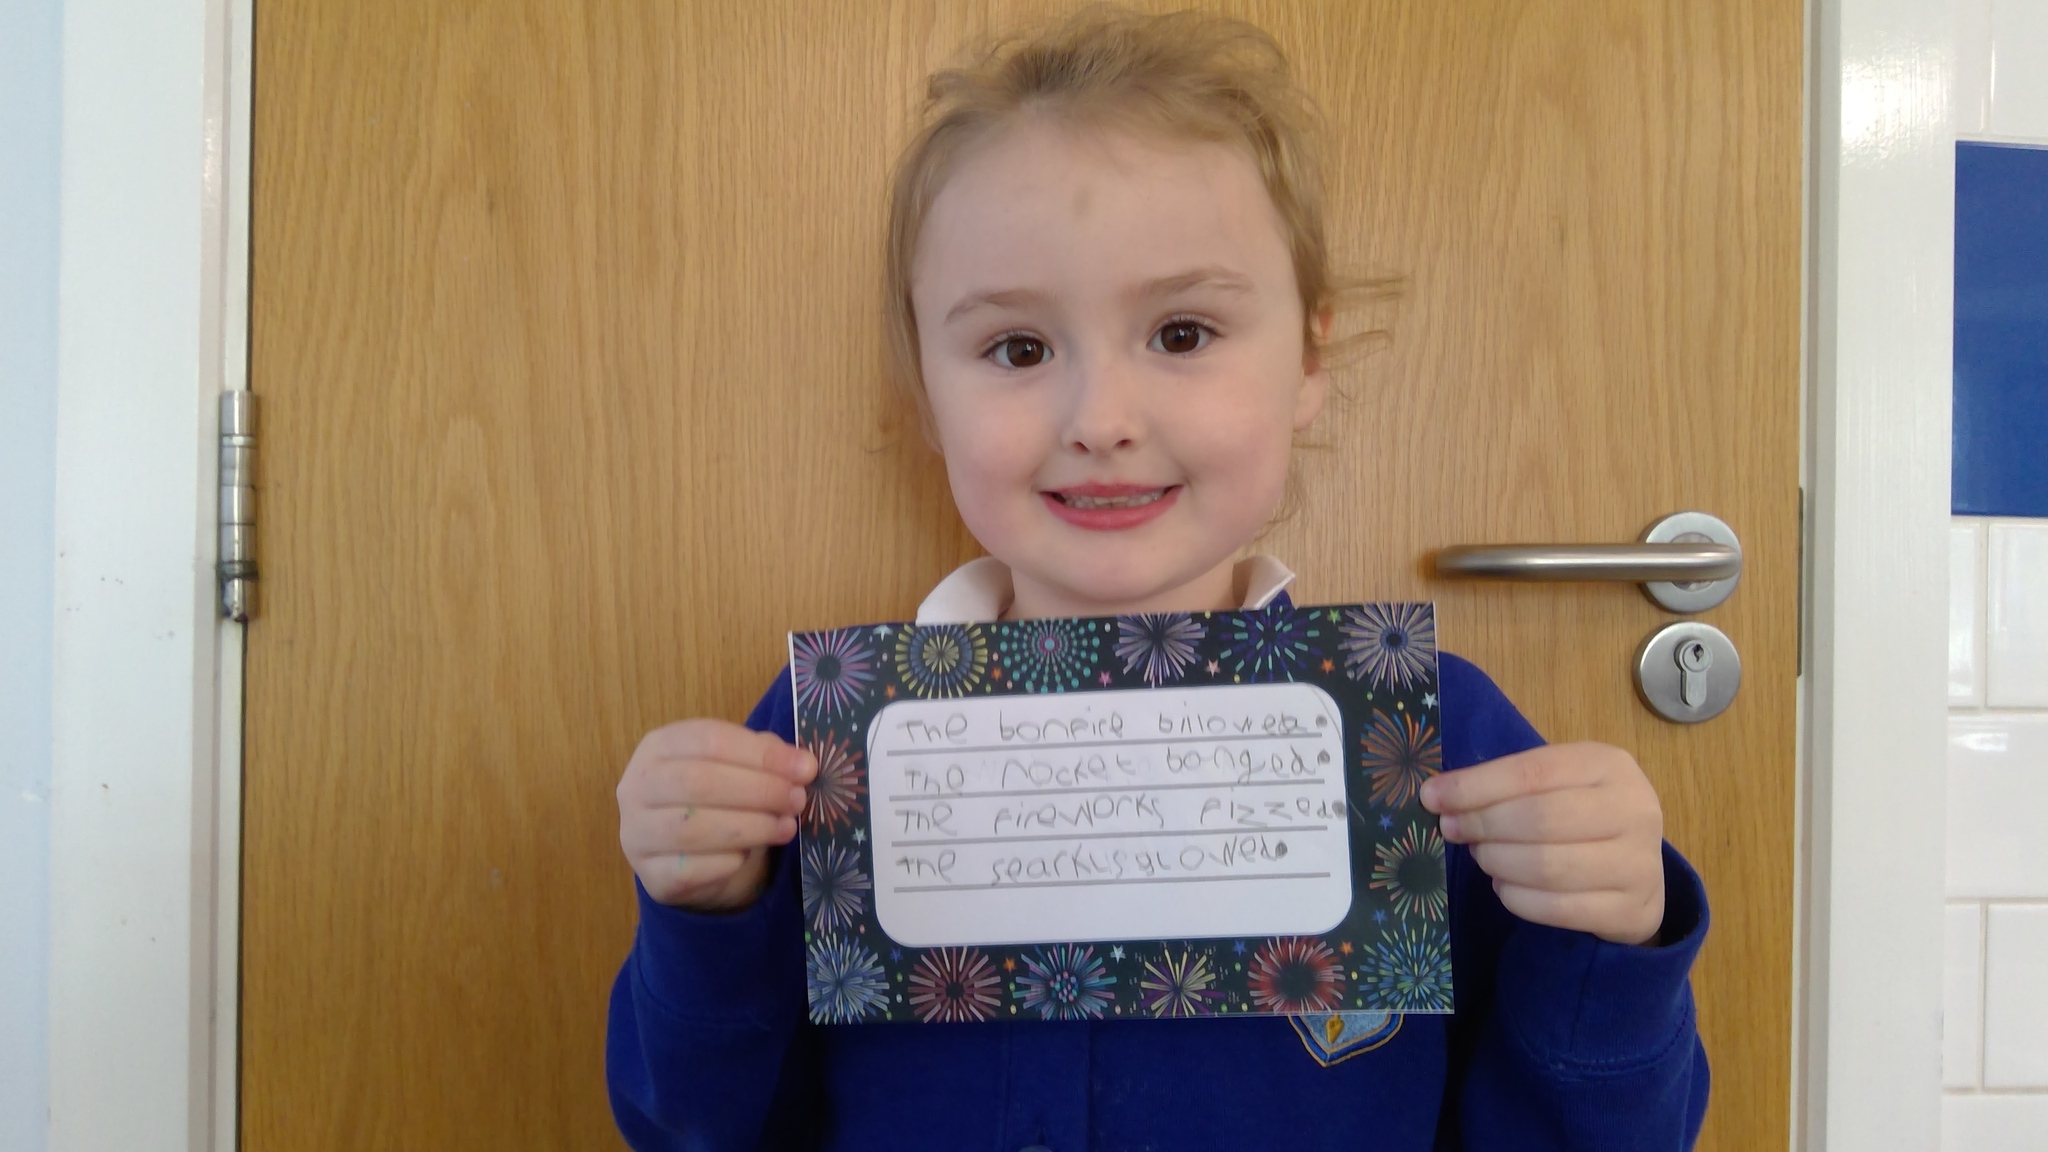 The bonfire billowed.
The rocket banged.
The fireworks fizzed.
The searklsglowed.